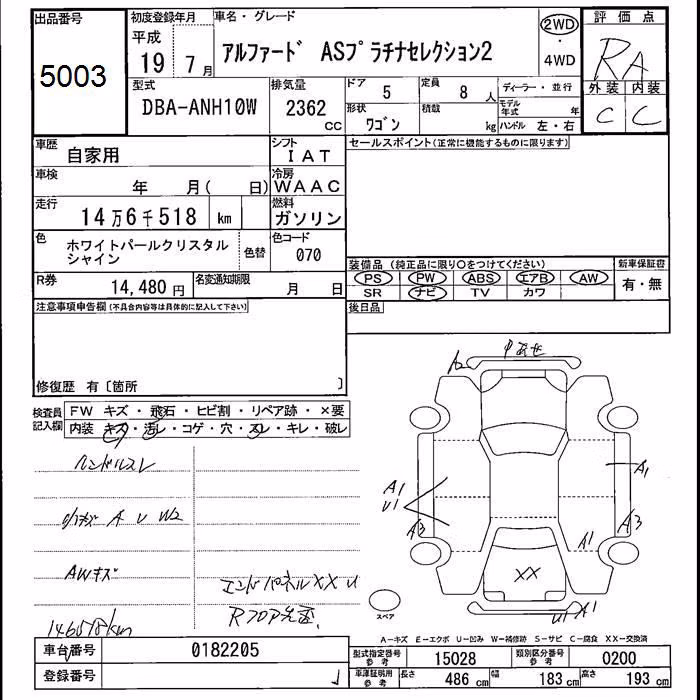 出品番号
5003
初度登録年月
平成
19 7月
車名・グレード
アルファード ASプラチナセレクション2
2WD
・
4WD
評価点
RA
外装 内装
C C
型式
DBA-ANH10W
排気量
2362
CC
ドア 5
形状
ワゴン
定員 8人
積載 kg
ディーラー・並行
モデル年式 年
ハンドル 左・右
車歴
自家用
シフト
IAT
車検
年 月( 日)
冷房
WAAC
走行
14万6千518 km
燃料
ガソリン
色
ホワイトパールクリスタル
シャイン
色替
色コード
070
R券
14,480円
名変通知期限
月 日
セールスポイント(正常に機能するものに限ります)
装備品 (純正品に限り○をつけてください)
PS PW ABS エアB AW
SR ナビ TV カワ
新車保証書
有・無
後日品
注意事項申告欄(不具合内容等は具体的に記入して下さい)
修復歴 有〔箇所 〕
検査員
記入欄
FW キズ・飛石・ヒビ割・リペア跡・×要
内装 キズ・汚レ・コゲ・穴・スレ・キレ・破レ
ハンドルスレ
小キズ A U W2
AWキズ
146518km
エンドパネルXX U
A2
A1
U1
A3
A1
A3
A1
XX
U1 A1
スペア
A-キズ E-エクボ U-凹み W-補修跡 S-サビ C-腐食 XX-交換済
車台番号
0182205
登録番号
型式指定番号
参考
15028
類別区分番号
参考
0200
車庫証明用
参考
長さ 486cm 幅 183cm 高さ 193cm